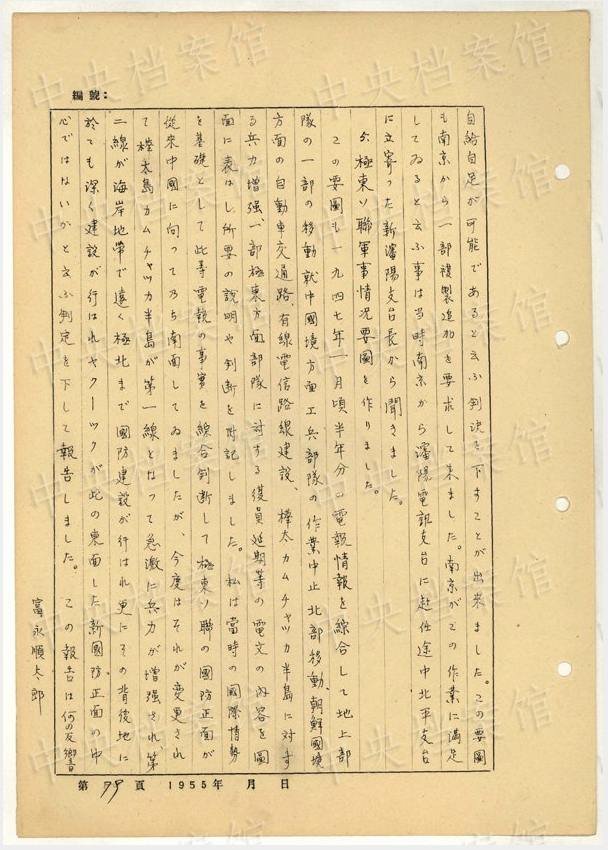 編號：
自給自足が可能であると云ふ判決を下すことが出来ました。この要圖
も南京から一部複製追加を要求して来ました。南京がこの作業に満足
してゐると云ふ事は当時南京から瀋陽電訊支台に赴任途中北平支台
に立寄った新瀋陽支台長から聞きました。
5、極東ソ聯軍事情況要圖を作りました。
この要圖も一九四七年一月頃半年分の電報情報を綜合して地上部
隊の一部の移動就中國境方面工兵部隊の作業中止北部移動、朝鮮國境
方面の自動車交通路、有線電信路線建設、樺太カムチャツカ半島に対す
る兵力増强、一部極東方面部隊に対する復員延期等の電文の内容を圖
面に表はし所要の説明や判断を附記しました。私は當時の國際情勢
を基礎として此等電報の事実を綜合判断して極東ソ聯の國防正面が
従来中國に向って乃ち南面してゐましたが、今度はそれが変更され
て樺太島カムチャツカ半島が第一線となって急激に兵力が増强され第
二線が海岸地帯で遠く極北まで國防建設が行はれ更にその背後地に
於ても深く建設が行はれヤクーツクが此の東面した新國防正面の中
心ではないかと云ふ判定を下して報告しました。この報告は何の反響
富永順太郎
第79頁 1955年 月 日
中央档案馆